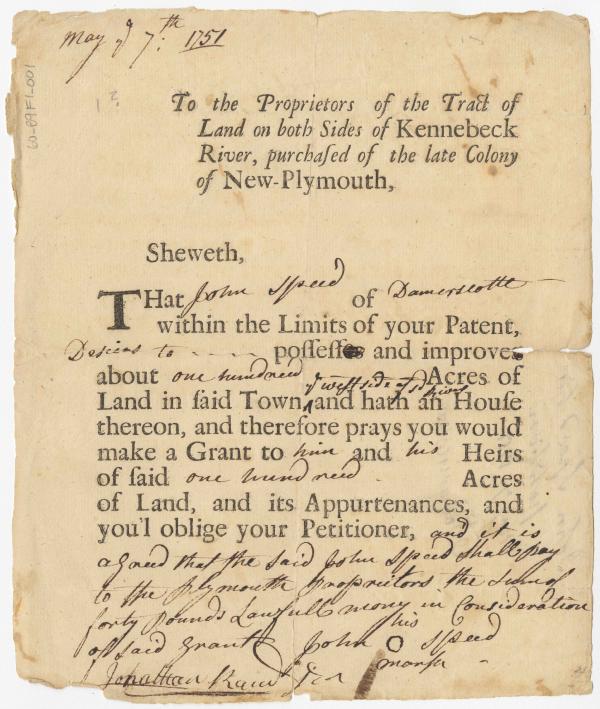 May ye 7th: 1751
60-89F1-001
To the Proprietors of the Tract of
Land on both Sides of Kennebeck
River, purchaſed of the late Colony
of New-Plymouth,
Sheweth,
THat John Speed of Damerscotte
within the Limits of your Patent,
Desiers to - - - - poſſeſs and improve
about one hundred Acres of
ye west side of sd River
Land in ſaid Town, and hath an Houſe
thereon, and therefore prays you would
make a Grant to him and his Heirs
of ſaid one hundred Acres
of Land, and its Appurtenances, and
you'l oblige your Petitioner, and it is
agreed that the said John Speed shall pay
to the Plymouth Proprietors the Sum of
forty Pounds Lawfull mony in Consideration
of said Grant John his O Speed
mark
Jonathan